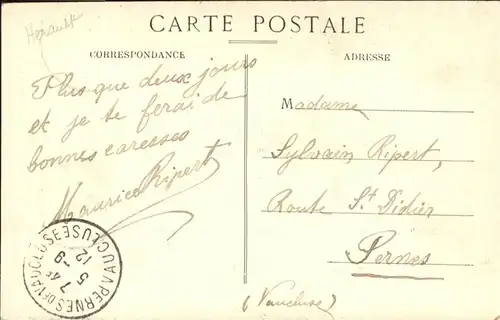 Hérault
CARTE POSTALE
CORRESPONDANCE
ADRESSE
Plus que deux jours
et je te ferai de
bonnes caresses
Maurice Ripert
Madame
Sylvain Ripert,
Route St Didier
Pernes
(Vaucluse)
7
5 -9
12
VAUCLUSE